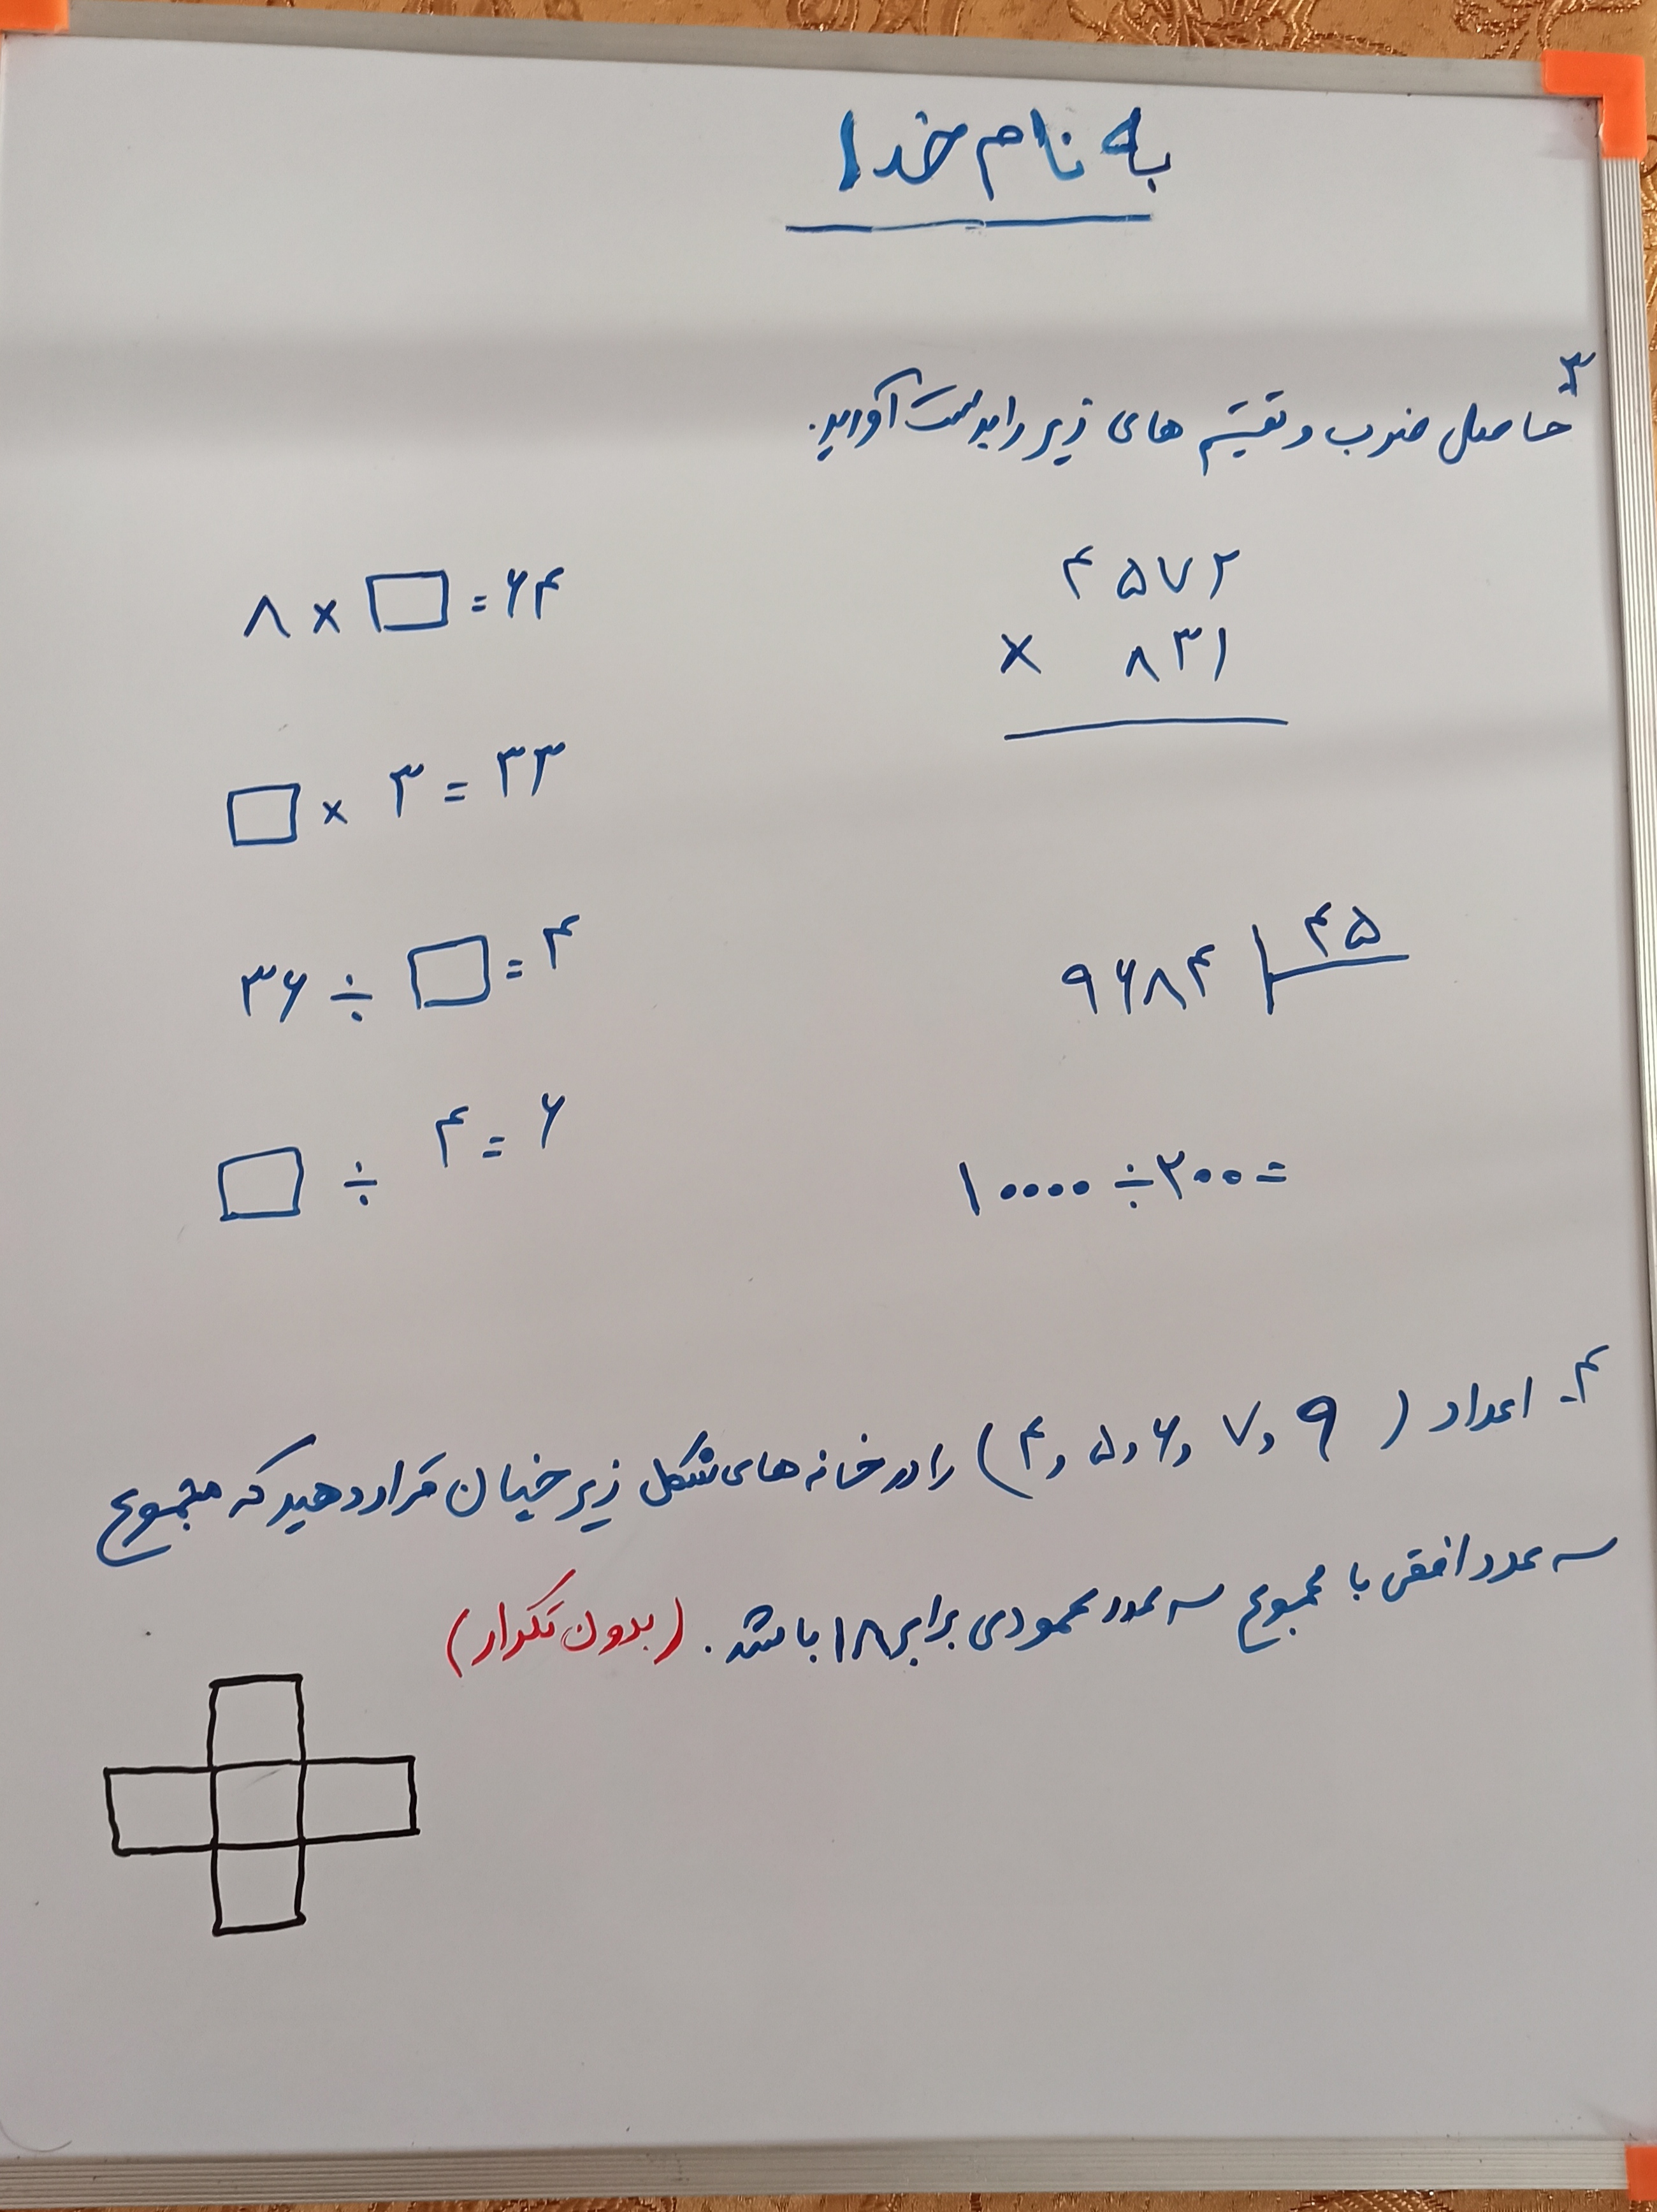 به نام خدا
۳- حاصل ضرب و تقسیم های زیر را بدست آورید.
۴۵۷۲
× ۸۳۱
۸ × □ = ۶۴
□ × ۳ = ۳۳
۹۶۸۴ | ۴۵
۳۶ ÷ □ = ۴
۱۰۰۰۰ ÷ ۲۰۰ =
□ ÷ ۴ = ۶
۴- اعداد (۴, ۵, ۶, ۷, ۹) را در خانه های شکل زیر خیان قرار دهید که مجموع
سه عدد افقی با مجموع سه عدد عمودی برابر ۱۸ باشد. (بدون تکرار)